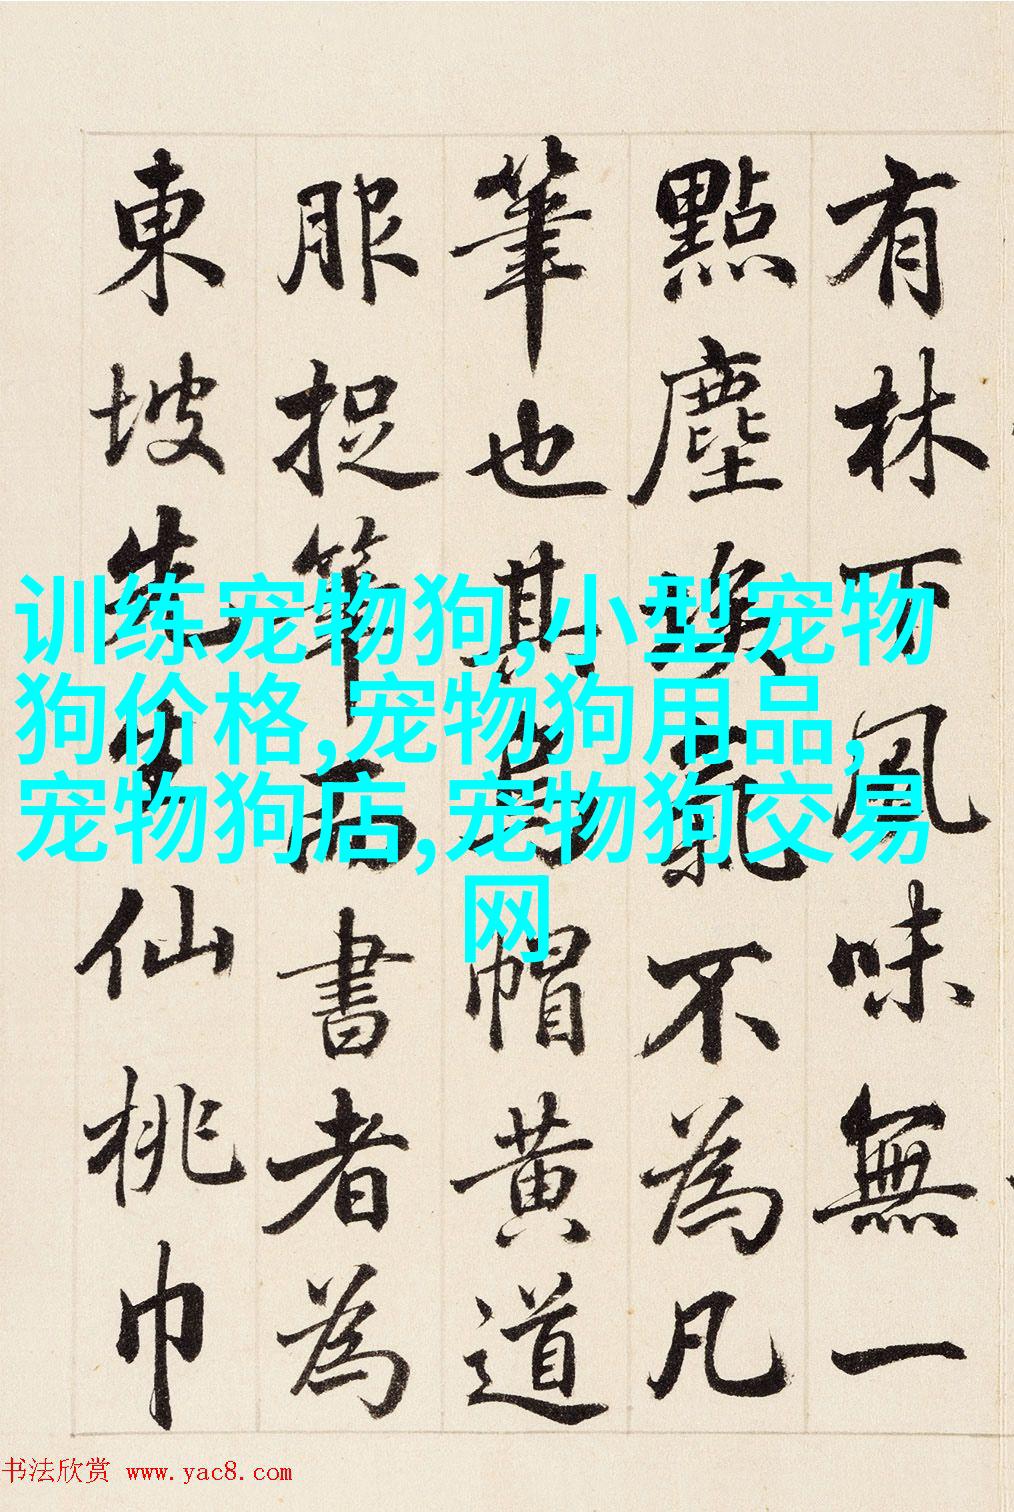 有林下風味無一
點塵埃氣不為凡
筆也其烏帽黃道
服捉筆而書者為
東坡先生仙桃巾
训练宠物狗,小型宠物
狗价格,宠物狗用品,
宠物狗店,宠物狗交易
网
书法欣赏 www.yac8.com